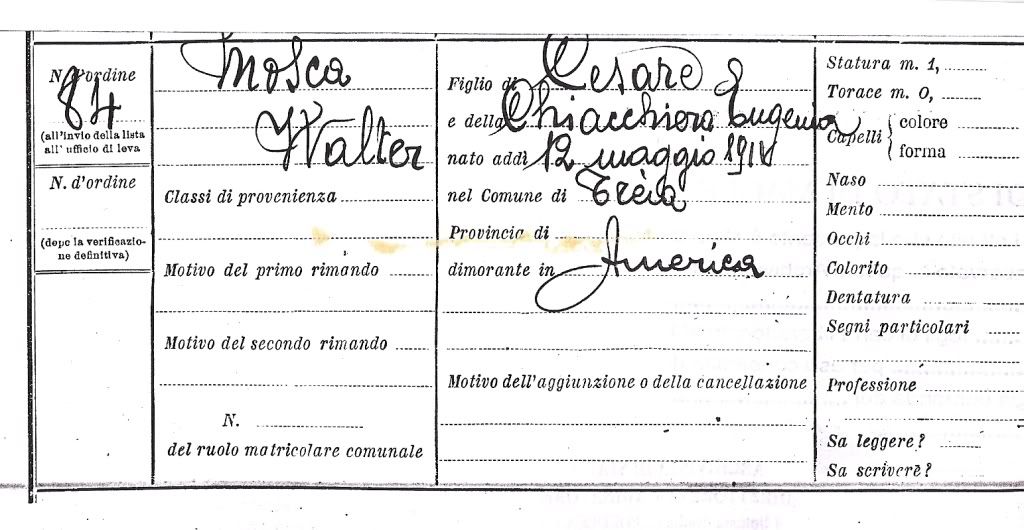 N. d'ordine
84
(all'invio della lista
all' ufficio di leva
N. d'ordine
(dopo la verificazio-
ne definitiva)
Mosca
Walter
Classi di provenienza
Motivo del primo rimando
Motivo del secondo rimando
N.
del ruolo matricolare comunale
Figlio di Cesare e
e della Chiacchiera Eugenia
nato addì 12 maggio 1914
nel Comune di Treia
Provincia di
dimorante in America
Motivo dell'aggiunzione o della cancellazione
Statura m. 1,
Torace m. 0,
Capelli { colore
forma
Naso
Mento
Occhi
Colorito
Dentatura
Segni particolari
Professione
Sa leggere?
Sa scrivere?